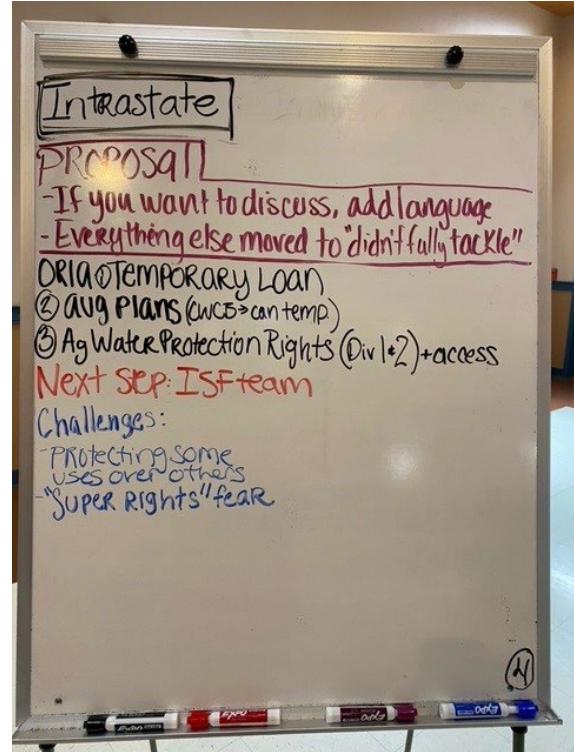 Intrastate
PROPOSAL
-If you want to discuss, add language
-Everything else moved to "didn't fully tackle"
① TEMPORARY LOAN
② aug plans (CWCB→can temp.)
③ Ag Water Protection Rights (Div 1+2) + access
Next Step: ISF team
Challenges:
-Protecting some
uses over others
-"Super Rights" fear
4
EXPO
EXPO
EXPO
EXPO